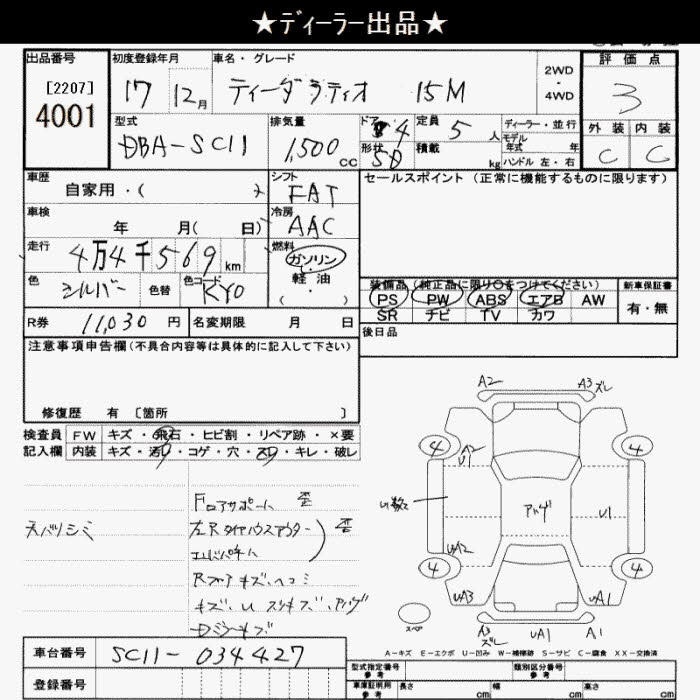 ★ディーラー出品★
出品番号 初度登録年月 車名・グレード 評価点
[2207] 4001 17 12月 ティーダラティオ 15M 2WD・4WD 3
型式 排気量 ドア 4 定員 5人 ディーラー・並行 外装 内装
DBA-SC11 1,500cc 形状 SD 積載 kg モデル年式 年 C C
ハンドル 左・右
車歴 自家用・( ) シフト FAT セールスポイント (正常に機能するものに限ります)
車検 年 月( 日) 冷房 AAC
走行 4万4千569km 燃料 ガソリン
軽油
( ・ )
色 シルバー 色替 色コード KY0
装備品 (純正品に限り○をつけてください) 新車保証書
PS PW ABS エアB AW 有・無
SR ナビ TV カワ
R券 11,030円 名変期限 月 日 後日品
注意事項申告欄(不具合内容等は具体的に記入して下さい)
修復歴 有 [箇所 ]
検査員 FW キズ・飛石・ヒビ割・リペア跡・×要
記入欄 内装 キズ・汚レ・コゲ・穴・スレ・キレ・破レ
Fロアサポート 歪
天バリシミ
左Rタイヤハウスアウター 歪
Rフロアキズ、ヘコミ
A2 A3 ズレ
4 A2 U1 4
U数 アトアゲ U1
UA2
4 4
UA3 UA1
スペア A3 ズレ UA1 A1
A-キズ E-エクボ U-凹み W-補修跡 S-サビ C-腐食 XX-交換済
車台番号 SC11-034427
登録番号
型式指定番号 参考 類別区分番号 参考
車庫証明用 参考 長さ cm 幅 cm 高さ cm